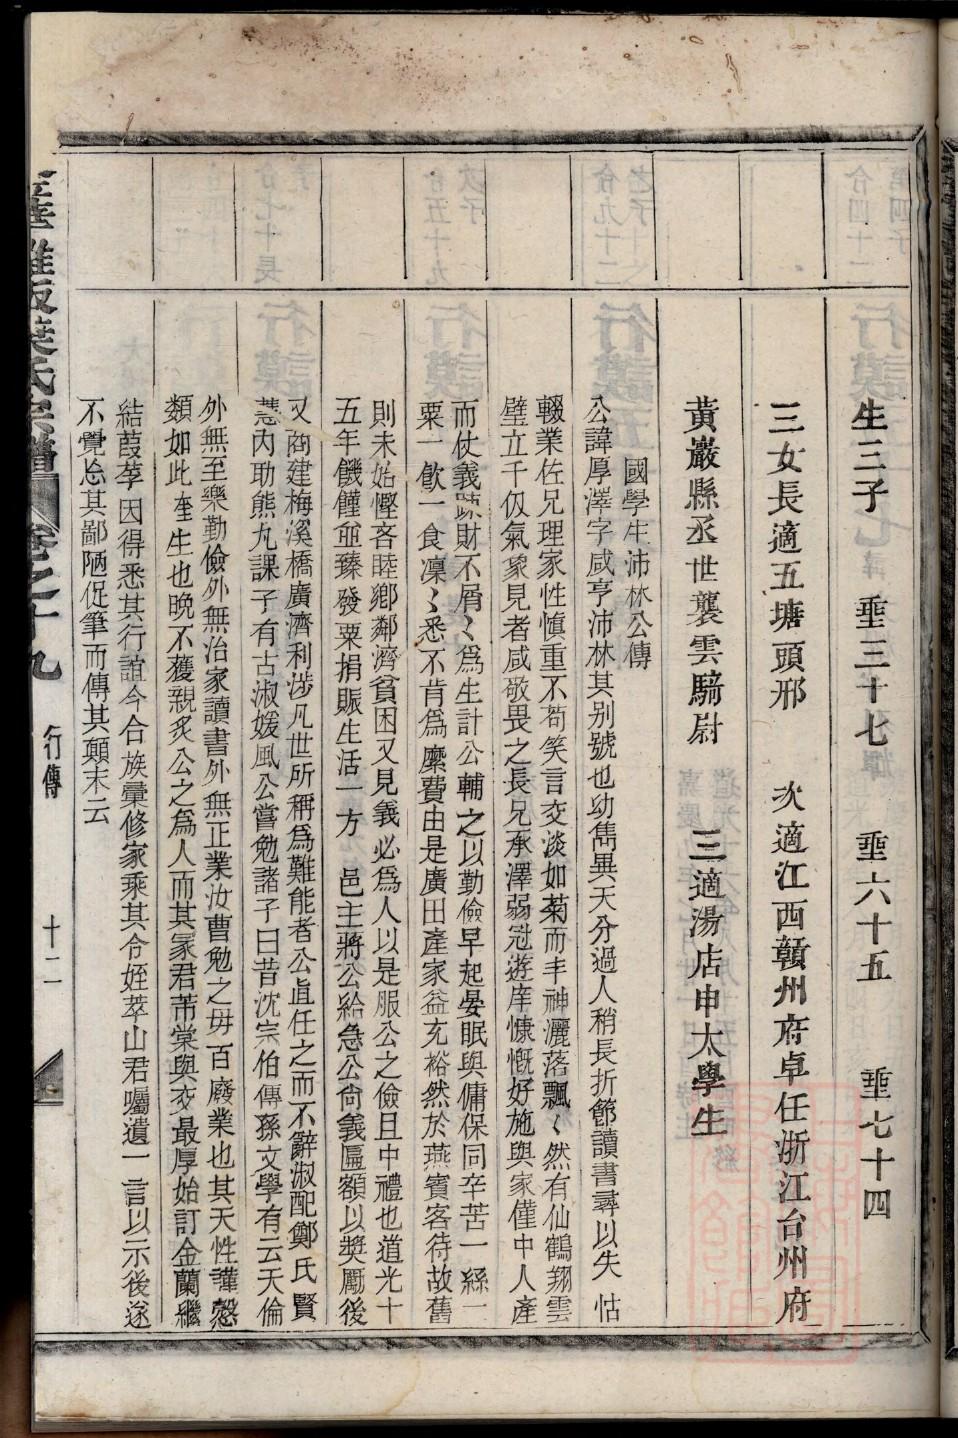 生三子 垂三十七 垂六十五 垂七十四
三女長適五塘頭邢 次適江西贛州府卓任浙江台州府
黃巖縣丞世襲雲騎尉 三適湯店申太學生
國學生沛林公傳
公諱厚澤字咸亨沛林其别號也幼雋異天分過人稍長折節讀書尋以失怙
輟業佐兄理家性慎重不苟笑言交淡如菊而丰神灑落飄〻然有仙鶴翔雲
壁立千仭氣象見者咸敬畏之長兄承澤弱冠遊庠慷慨好施與家僅中人產
而仗義疎財不屑〻爲生計公輔之以勤儉早起晏眠與傭保同辛苦一絲一
粟一飮一食凜〻悉不肯爲糜費由是廣田產家益充裕然於燕賓客待故舊
則未始慳吝睦鄉鄰濟貧困又見義必爲人以是服公之儉且中禮也道光十
五年饑饉洊臻發粟捐賑生活一方邑主蔣公給急公尙義匾額以奬勵後
又商建梅溪橋廣濟利涉凡世所稱爲難能者公直任之而不辭淑配鄭氏賢
慧內助熊丸課子有古淑媛風公嘗勉諸子曰昔沈宗伯傳孫文學有云天倫
外無至樂勤儉外無治家讀書外無正業汝曹勉之毋百廢業也其天性謹慤
類如此奎生也晚不獲親炙公之爲人而其冢君芾棠與交最厚始訂金蘭繼
結葭莩因得悉其行誼今合族彙修家乘其令姪萃山君囑遺一言以示後遂
不覺忘其鄙陋促筆而傳其顛末云
華 葉氏宗譜 卷之十九 行傳 十二